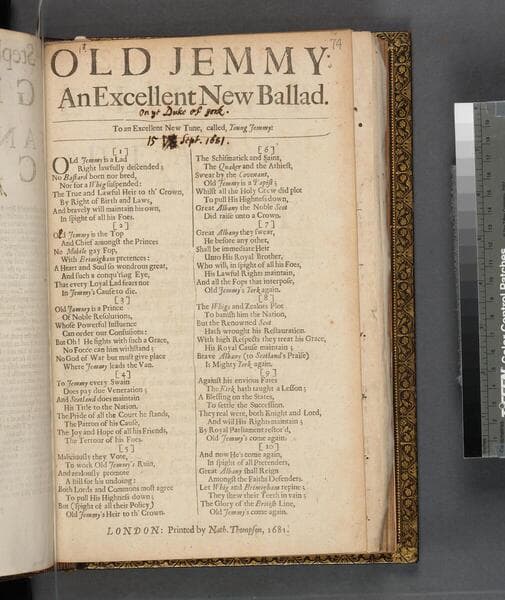 OLD JEMMY:
74
An Excellent New Ballad.
on ye Duke of york.
To an Excellent New Tune, called, Young Jemmy.
15 Sept. 1681.
[1]
Old Jemmy is a Lad
Right lawfully descended;
No Bastard born nor bred,
Nor for a Whig suspended:
The True and Lawful Heir to th' Crown,
By Right of Birth and Laws,
And bravely will maintain his own,
In spight of all his Foes.
[2]
Old Jemmy is the Top
And Chief amongst the Princes
No Mobile gay Fop,
With Bromigham pretences:
A Heart and Soul so wondrous great,
And such a conqu'ring Eye,
That every Loyal Lad fears not
In Jemmy's Cause to die.
[3]
Old Jammy is a Prince
Of Noble Resolutions,
Whose Powerful Influence
Can order our Confusions:
But Oh! He fights with such a Grace,
No Force can him withstand;
No God of War but must give place
Where Jemmy leads the Van.
[4]
To Jemmy every Swain
Does pay due Veneration;
And Scotland does maintain
His Title to the Nation.
The Pride of all the Court he stands,
The Patron of his Cause,
The Joy and Hope of all his Friends,
The Terrour of his Foes.
[5]
Maliciously they Vote,
To work Old Jemmy's Ruin,
And zealously promote
A Bill for his undoing:
Both Lords and Commons most agree
To pull His Highness down;
But (spight of all their Policy)
Old Jemmy's Heir to th' Crown.
[6]
The Schismatick and Saint,
The Quaker and the Athiest,
Swear by the Covenant,
Old Jemmy is a Papist;
Whilst all the Holy Crew did plot
To pull His Highness down,
Great Albany the Noble Scot
Did raise unto a Crown.
[7]
Great Albany they swear,
He before any other,
Shall be immediate Heir
Unto His Royal Brother,
Who will, in spight of all his Foes,
His Lawful Rights maintain,
And all the Fops that interpose,
Old Jemmy's York again.
[8]
The Whigs and Zealots Plot
To banish him the Nation,
But the Renowned Scot
Hath wrought his Restauration.
With high Respects they treat his Grace,
His Royal Cause maintain;
Brave Albany (to Scotland's Praise)
Is Mighty York again.
[9]
Against his envious Fates
The Kirk hath taught a Lesson;
A Blessing on the States,
To settle the Succession.
They real were, both Knight and Lord,
And will His Rights maintain;
By Royal Parliament restor'd,
Old Jemmy's come again.
[10]
And now He's come again,
In spight of all Pretenders,
Great Albany shall Reign
Amongst the Faiths Defenders.
Let Whig and Bromigham repine;
They shew their Teeth in vain;
The Glory of the British Line,
Old Jemmy's come again.
LONDON: Printed by Nath. Thompson, 1681.